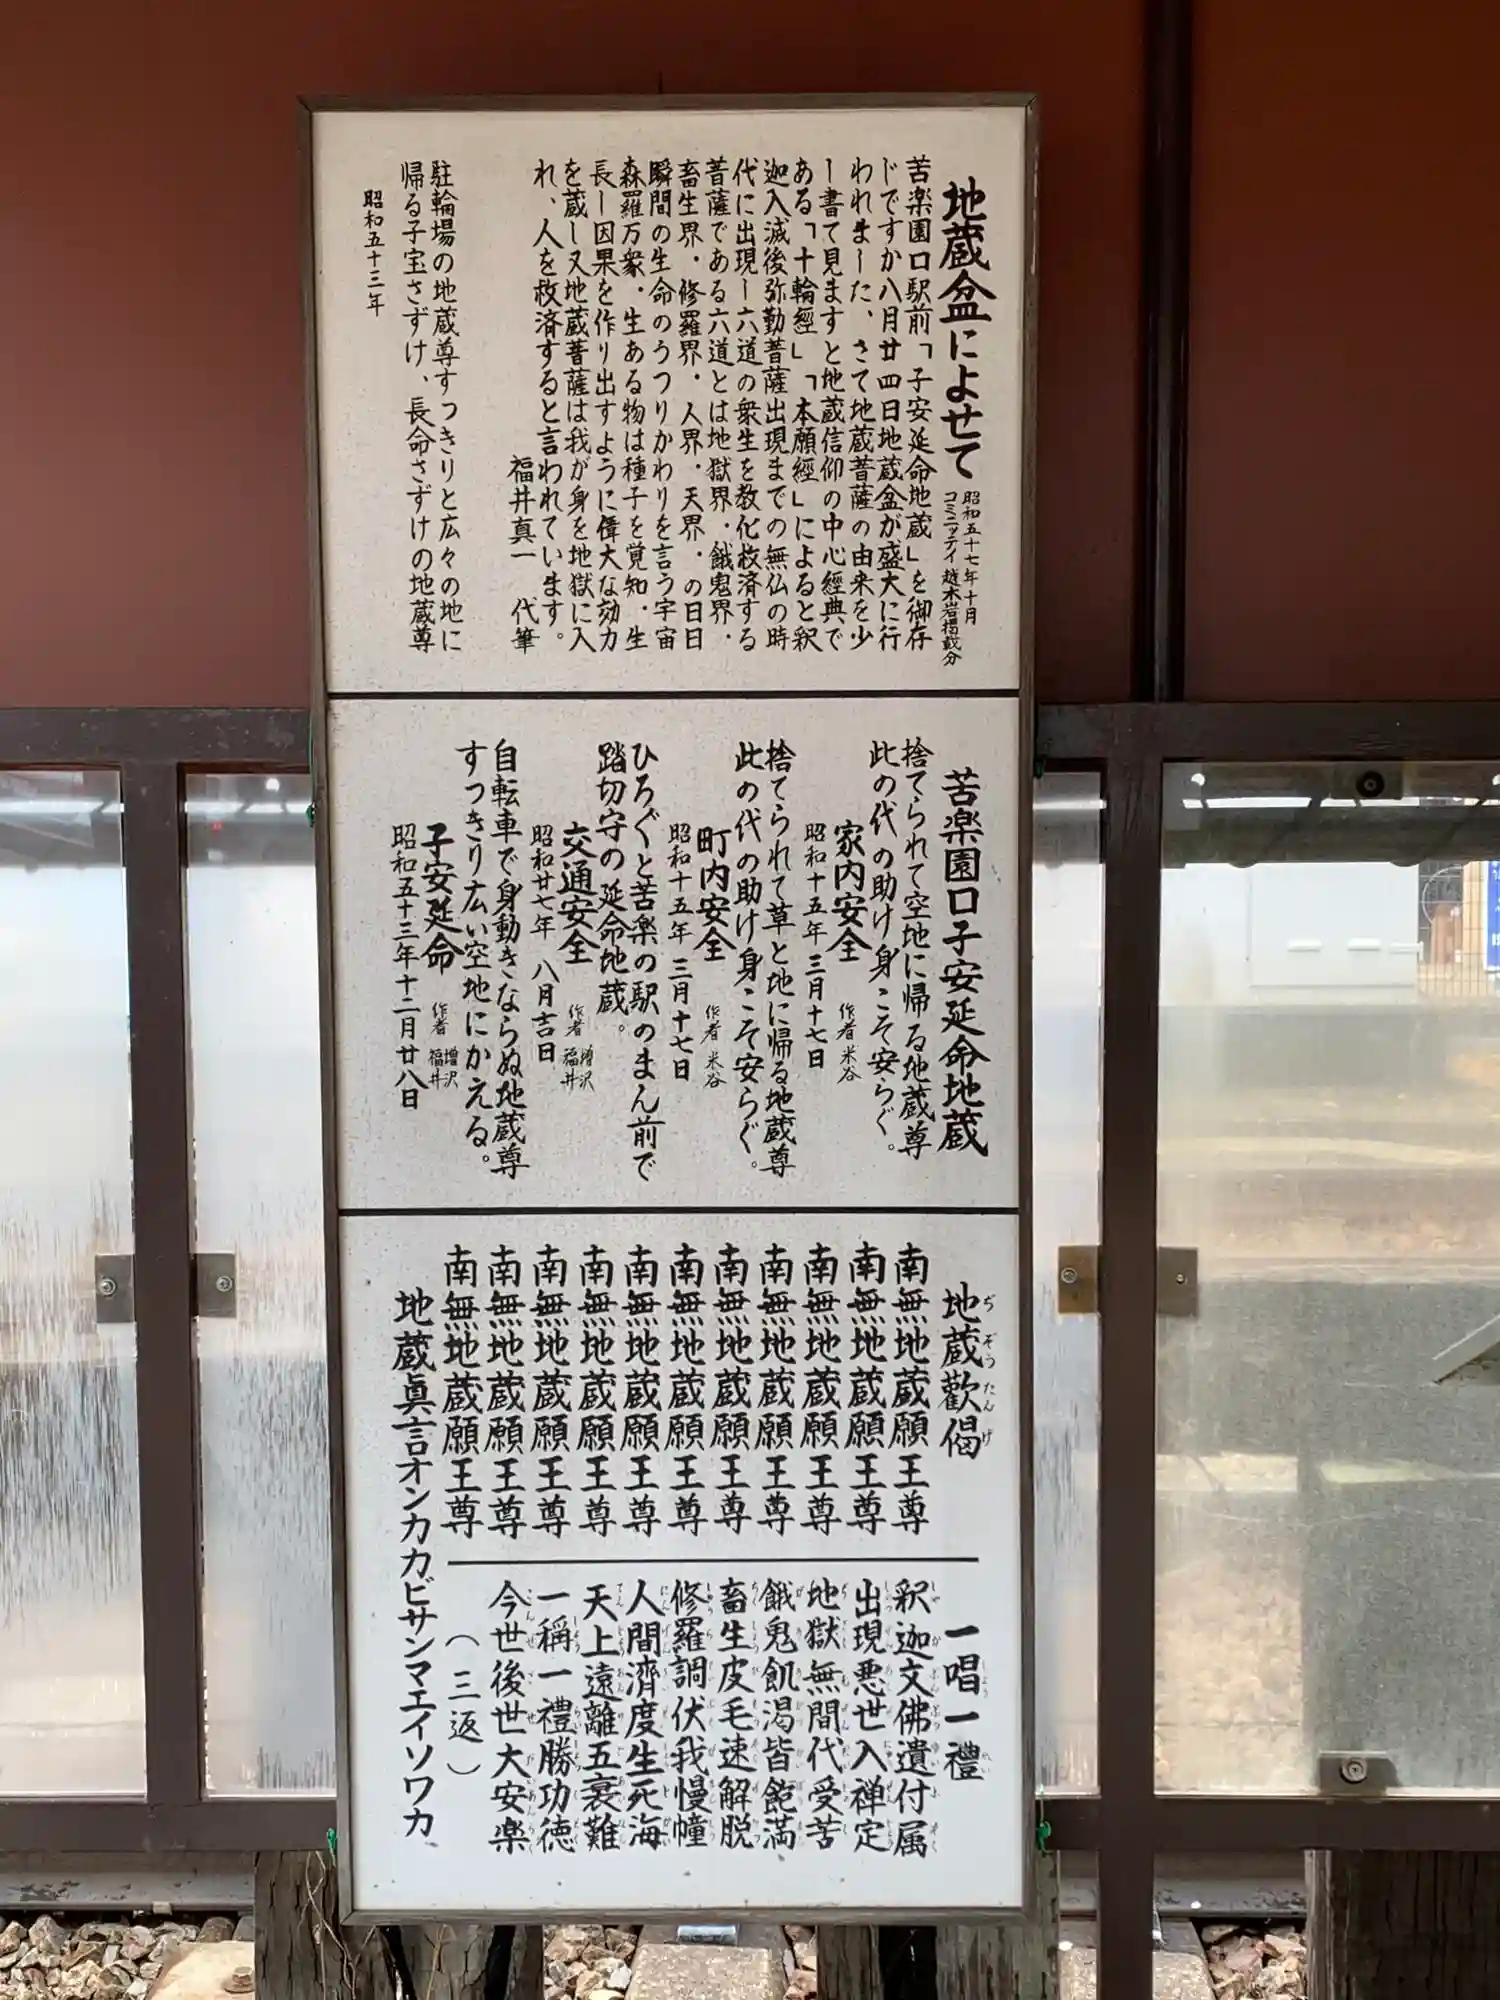 地蔵盆によせて
昭和五十七年十月
コミニッテイ 越木岩掲載分
苦楽園口駅前「子安延命地蔵」を御存
じですか八月廿四日地蔵盆が盛大に行
われました、さて地蔵菩薩の由来を少
し書て見ますと地蔵信仰の中心經典で
ある「十輪經」「本願經」によると釈
迦入滅後弥勤菩薩出現までの無仏の時
代に出現し六道の衆生を教化救済する
菩薩である六道とは地獄界．餓鬼界．
畜生界．修羅界．人界．天界．の日日
瞬間の生命のうつりかわりを言う宇宙
森羅万象．生ある物は種子を覚知．生
長し因果を作り出すように偉大な効力
を蔵し又地蔵菩薩は我が身を地獄に入
れ、人を救済すると言われています。
福井真一 代筆
駐輪場の地蔵尊すっきりと広々の地に
帰る子宝さずけ、長命さずけの地蔵尊
昭和五十三年
苦楽園口子安延命地蔵
捨てられて空地に帰る地蔵尊
此の代の助け身こそ安らぐ。
家内安全 作者 米谷
昭和十五年 三月十七日
捨てられて草と地に帰る地蔵尊
此の代の助け身こそ安らぐ。
町内安全 作者 米谷
昭和十五年 三月十七日
ひろぐと苦楽の駅のまん前で
踏切守の延命地蔵。
交通安全 作者 増沢 福井
昭和廿七年 八月吉日
自転車で身動きならぬ地蔵尊
すっきり広い空地にかえる。
子安延命 作者 増沢 福井
昭和五十三年十二月廿八日
地蔵歎偈 一唱一禮
南無地蔵願王尊
南無地蔵願王尊
南無地蔵願王尊
南無地蔵願王尊
南無地蔵願王尊
南無地蔵願王尊
南無地蔵願王尊
南無地蔵願王尊
南無地蔵願王尊
南無地蔵願王尊
南無地蔵願王尊
釈迦文佛遺付属
出現悪世入禅定
地獄無間代受苦
餓鬼飢渇皆飽満
畜生皮毛速解脱
修羅調伏我慢幢
人間濟度生死海
天上遠離五衰難
一稱一禮勝功徳
今世後世大安楽
（三返）
地蔵眞言オンカカビサンマエイソワカ